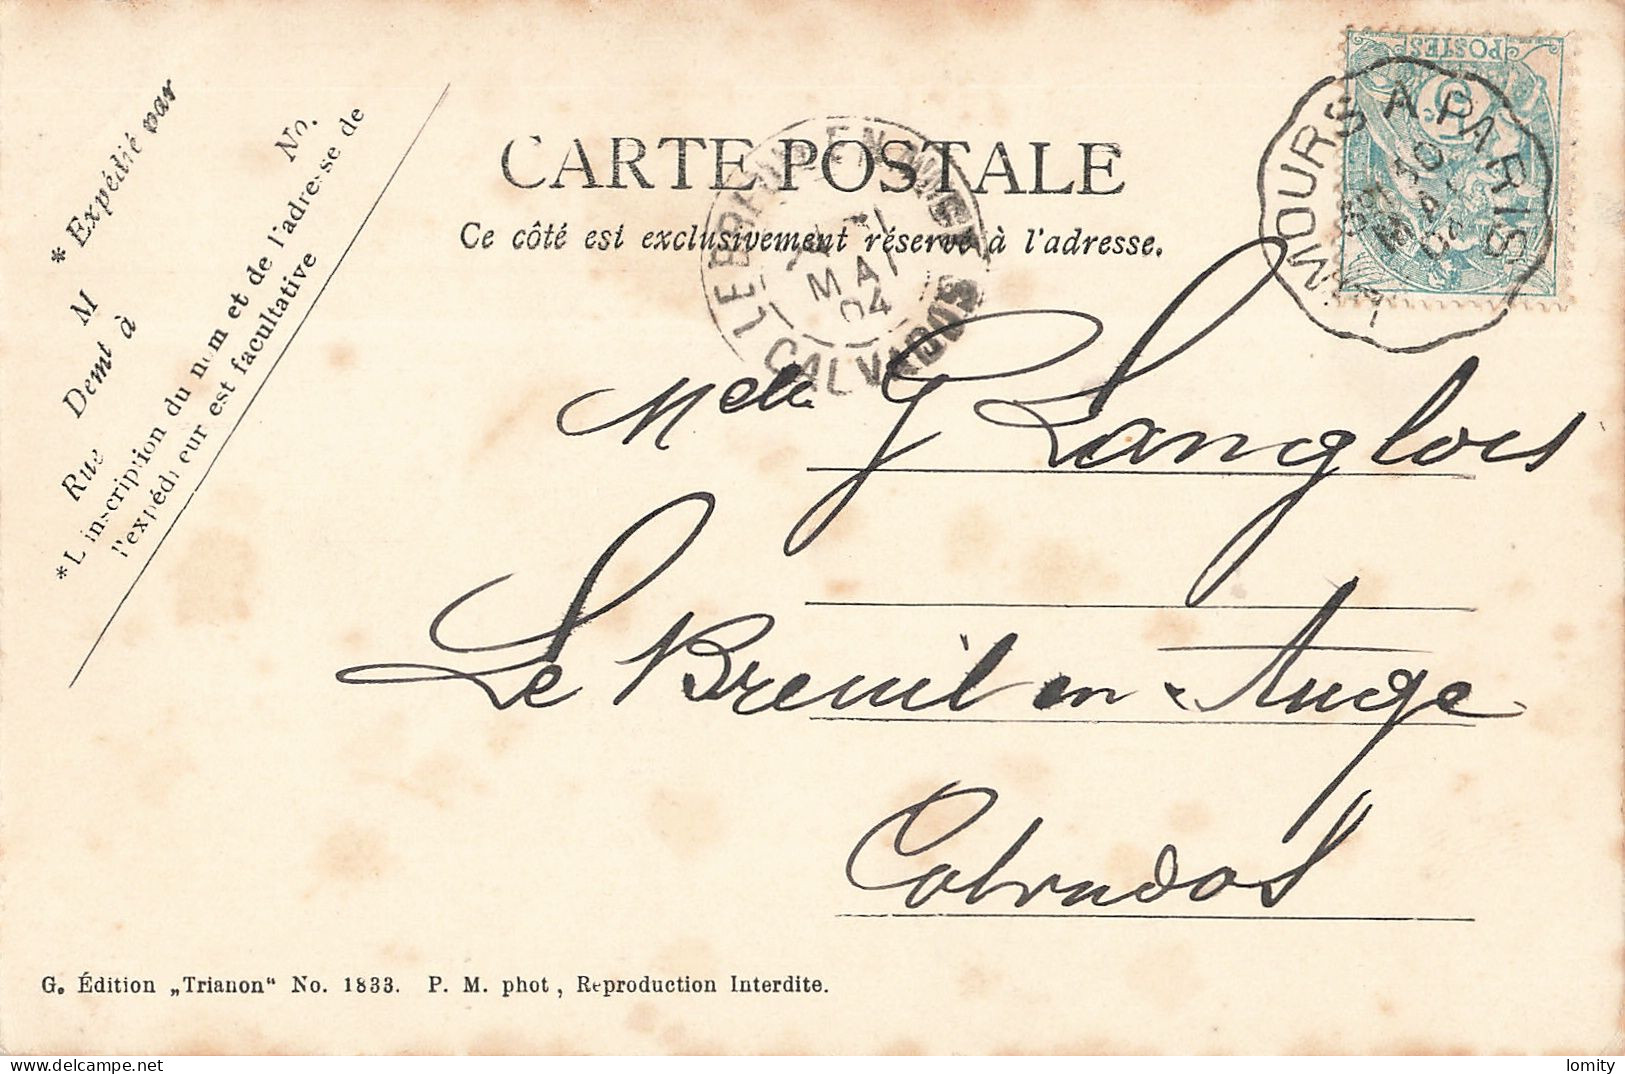 * Expédié par
M
Demt à
Rue
No.
*L'inscription du nom et de l'adresse de
l'expéditeur est facultative
CARTE POSTALE
Ce côté est exclusivement réservé à l'adresse.
LE BREUIL-EN-AUGE
MAI
04
CALVADOS
POSTES
5
A PARIS
Melle G Langlois
Le Breuil en Auge
Calvados
G. Édition „Trianon“ No. 1833. P. M. phot, Reproduction Interdite.
lomity